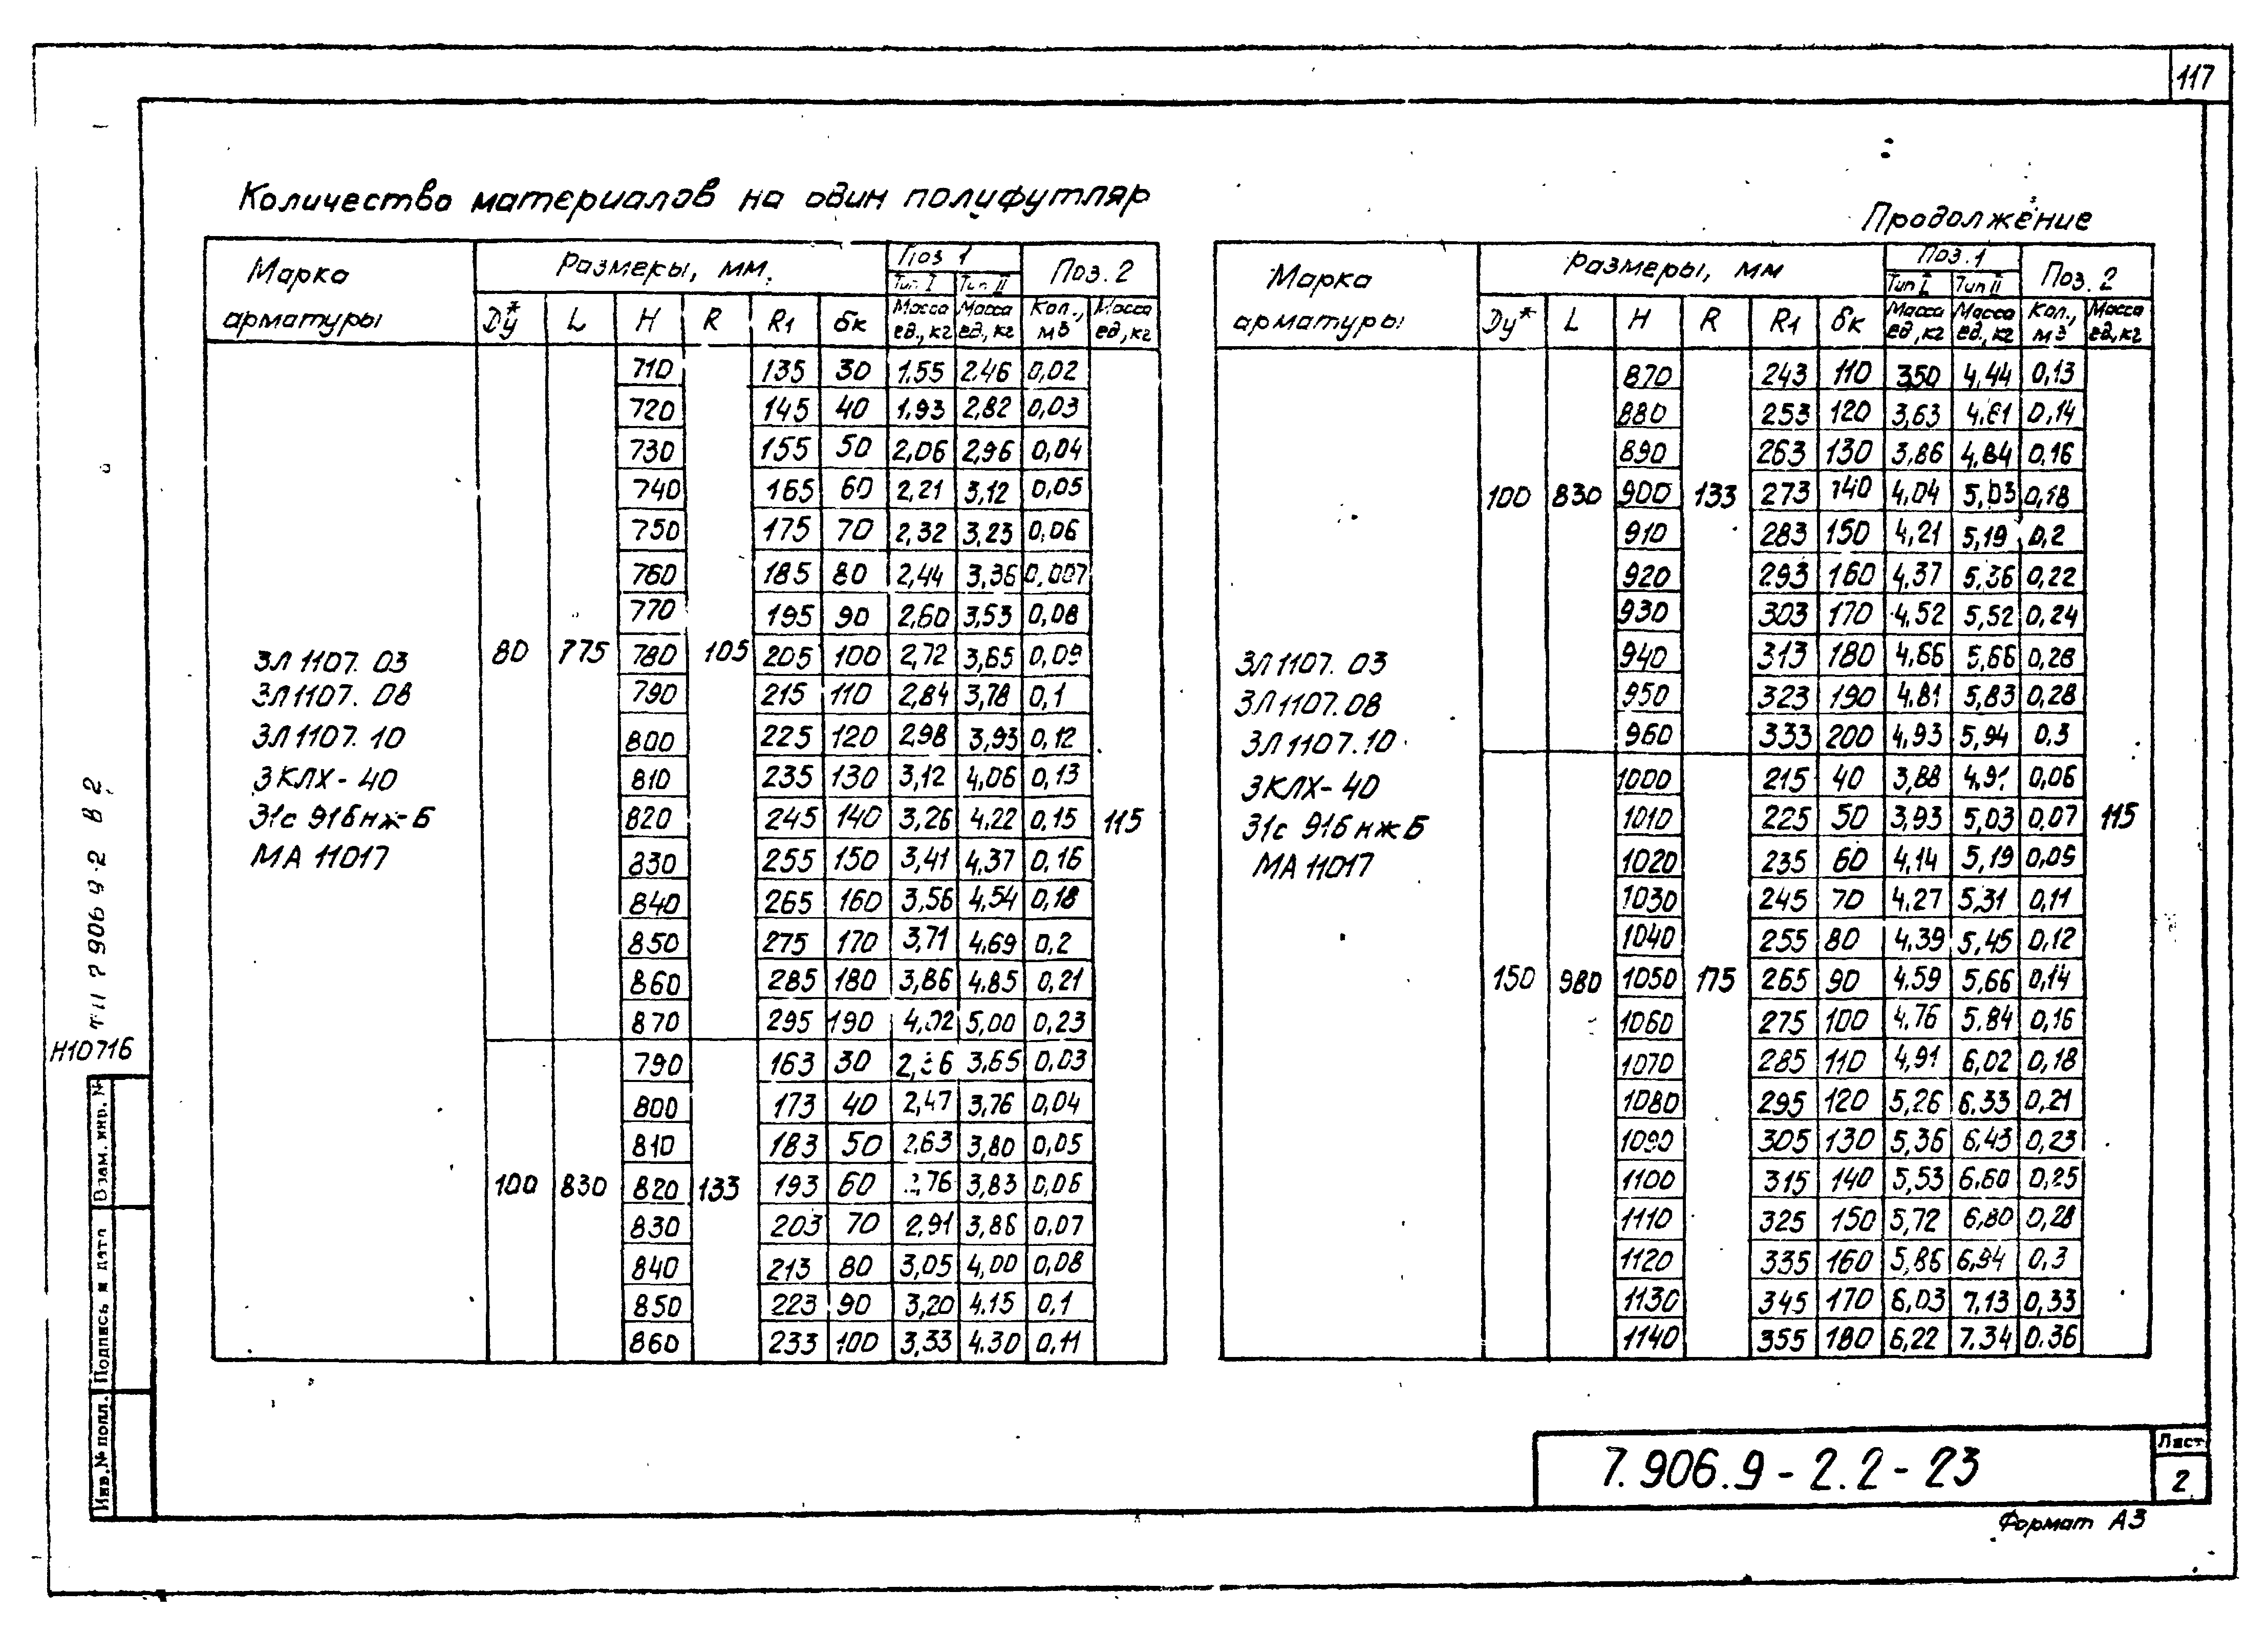 117
Количество материалов на один полуфутляр
Марка арматуры | Размеры, мм. | Поз 1 | Поз. 2
Ду* | L | H | R | R1 | бк | Тип I Масса ед., кг | Тип II Масса ед., кг | Кол., м3 | Масса ед., кг
710 135 30 1.55 2.46 0,02
720 145 40 1.93 2.82 0,03
730 155 50 2,06 2,96 0,04
740 165 60 2,21 3,12 0,05
750 175 70 2,32 3,23 0,06
760 185 80 2,44 3,36 0,007
770 195 90 2,60 3,53 0,08
ЗЛ 1107. 03 80 775 780 105 205 100 2,72 3,65 0,09
ЗЛ 1107. 08 790 215 110 2,84 3,78 0,1
ЗЛ 1107. 10 800 225 120 2,98 3,93 0,12
ЗКЛХ - 40 810 235 130 3,12 4,06 0,13
31с 916нж-Б 820 245 140 3,26 4.22 0,15 115
МА 11017 830 255 150 3,41 4,37 0,16
840 265 160 3,56 4,54 0,18
850 275 170 3,71 4,69 0,2
860 285 180 3,86 4.85 0,21
870 295 190 4,02 5,00 0,23
790 163 30 3,65 0,03
800 173 40 2,47 3,76 0,04
810 183 50 2,63 3,80 0,05
100 830 820 133 193 60 3,83 0,06
830 203 70 2,91 3,86 0,07
840 213 80 3,05 4,00 0,08
850 223 90 3,20 4.15 0,1
860 233 100 3,33 4.30 0,11
Продолжение
Марка арматуры | Размеры, мм | Поз. 1 | Поз. 2
Ду* | L | H | R | R1 | бк | Тип I Масса ед., кг | Тип II Масса ед., кг | Кол., м3 | Масса ед, кг
870 243 110 3,50 4,44 0,13
880 253 120 3,63 4,61 0,14
890 263 130 3,86 4,84 0,16
100 830 900 133 273 140 4,04 5,03 0,18
910 283 150 4,21 5,19 0,2
920 293 160 4,37 5,36 0,22
930 303 170 4,52 5,52 0,24
ЗЛ 1107. 03 940 313 180 4,66 5,66 0,26
ЗЛ 1107. 08 950 323 190 4.81 5,83 0,28
ЗЛ 1107.10 960 333 200 4,93 5,94 0,3
ЗКЛХ-40 1000 215 40 3,88 4,91 0,06
31с 916нжБ 1010 225 50 3,93 5,03 0,07 115
МА 11017 1020 235 60 4,14 5,19 0,09
1030 245 70 4,27 5,31 0,11
1040 255 80 4,39 5,45 0,12
150 980 1050 175 265 90 4.59 5,66 0,14
1060 275 100 4.76 5.84 0,16
1070 285 110 4,91 6,02 0,18
1080 295 120 5,26 6.33 0,21
1090 305 130 5,36 6,43 0,23
1100 315 140 5,53 6,60 0,25
1110 325 150 5,72 6,80 0,28
1120 335 160 5,86 6,94 0,3
1130 345 170 6,03 7,13 0,33
1140 355 180 6,22 7.34 0.36
Н10716
Взам. инв. №
Подпись и дата
Инв. № подл.
7.906.9 - 2.2 - 23
Лист
2
Формат А3